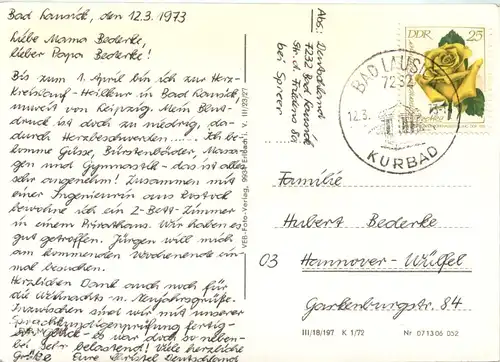 Bad Lausick, den 12.3.1973
Liebe Mama Bederke,
lieber Papa Bederke!
Bis zum 1. April bin ich zur Herz-
Kreislauf-Heilkur in Bad Lausick,
unweit von Leipzig. Mein Blut-
druck ist doch zu niedrig, da-
durch Herzbeschwerden.... Ich be-
komme Güsse, Bürstenbäder, Massa-
gen und Gymnastik - das ist alles
sehr angenehm! Zusammen mit
einer Ingenieurin aus Rostock
bewohne ich ein 2-Bett-Zimmer
in einem Privathaus. Wir haben es
gut getroffen. Jürgen will mich
am kommenden Wochenende ein-
mal besuchen.
Herzlichen Dank auch noch für
die Weihnachts- u. Neujahrsgrüße.
Inzwischen sind wir mit unserer
Sprachkundigenprüfung fertig -
mit Glück - es war doch so neben-
bei sehr belastend! Viele herzliche
Grüße Eure Christel Deutschland
VEB-Foto-Verlag, 9935 Erlbach i. V. III/23/27
Abs: Deutschland
7232 Bad Lausick
Str. d.
bei
DDR 25
BAD LAUSICK
7232
12.3.
KURBAD
Familie
Hubert Bederke
03 Hannover-Wülfel
Garkenburgstr. 84
III/18/197 K 1/72 Nr 07 13 06 052